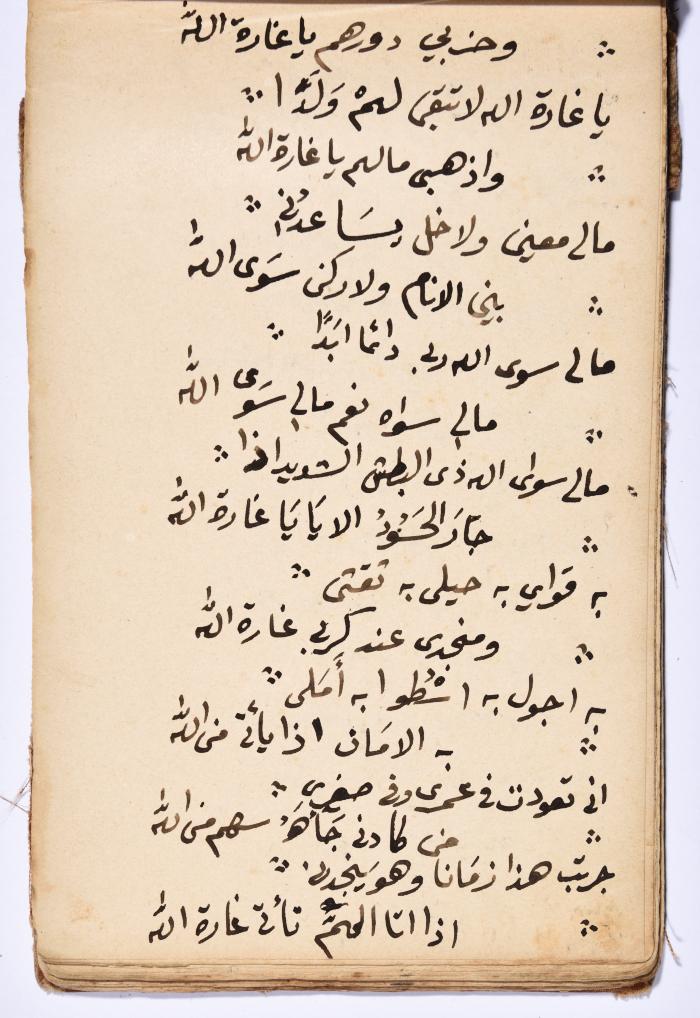 وخربي دورهم يا غارة الله
يا غارة الله لا تبقي لهمْ وَلَدًا
واذهبي مالهم يا غارة الله
مالي معيني ولا خل يسَاعدُني
بيني الانام ولا ركني سَوى الله
مالي سوى الله ربي دائما ابَدًا
مالي سواه نعم مالي سَوى الله
مالي سواى الله ذى البطش الشديد اذا
جَارَ الحَسُودُ الا يَا يَا غارة الله
به قوَاي به حيلى به ثقتى
ومنجدى عند كربي غارة الله
به اجول به اسْطُوا به أَمَلى
به الامَان اذا يأتى من الله
انى تعودت فى عمرى وفى صغرى
من كادنى جَآهُ سهم من الله
جربت هذا زمَانا وهو يَنجدنى
اذا اتا الهمَّ تأتى غارة الله